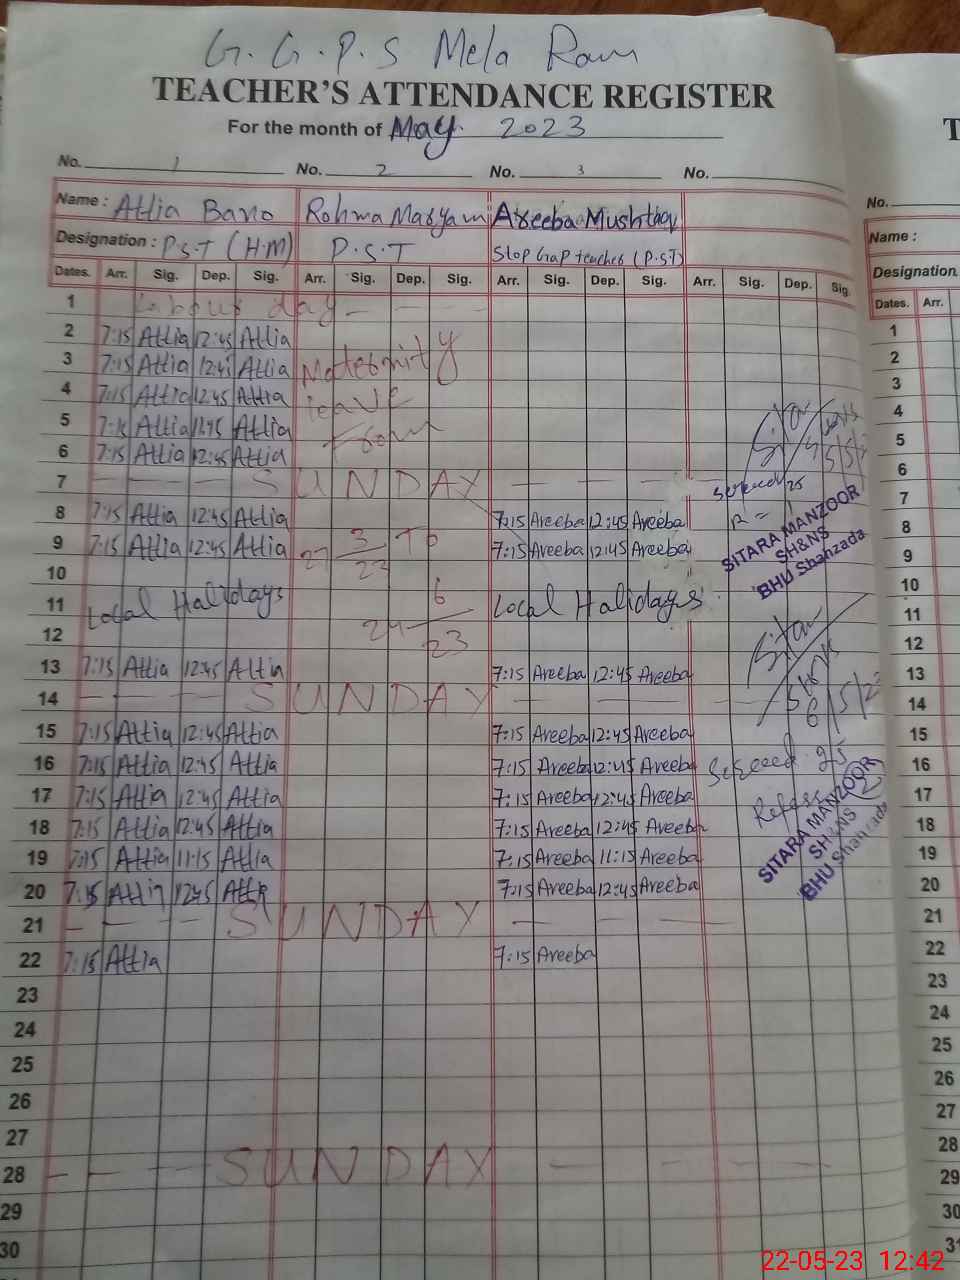 G.G.P.S Mela Ram
TEACHER'S ATTENDANCE REGISTER
For the month of May. 2023
No. 1 No. 2 No. 3 No.
Name : Attia Bano Rohma Maryam Areeba Mushtaq
Designation : P.S.T (H.M) P.S.T Stop Gap teacher (P.S.T)
Dates. Arr. Sig. Dep. Sig. Arr. Sig. Dep. Sig. Arr. Sig. Dep. Sig. Arr. Sig. Dep. Sig.
1 Labour day
2 7:15 Attia 12:45 Attia
3 7:15 Attia 12:45 Attia Maternity
4 7:15 Attia 12:45 Attia leave
5 7:15 Attia Attia From
6 7:15 Attia 12:45 Attia
7 SUNDAY
8 7:15 Attia 12:45 Attia 7:15 Areeba 12:45 Areeba
9 7:15 Attia 12:45 Attia 27 3 23 To 7:15 Areeba 12:45 Areeba
10
11 Local Halidays 6 Local Halidays
12 24 23
13 7:15 Attia 12:45 Attia 7:15 Areeba 12:45 Areeba
14 SUNDAY
15 7:15 Attia 12:45 Attia 7:15 Areeba 12:45 Areeba
16 7:15 Attia 12:45 Attia 7:15 Areeba 12:45 Areeba
17 7:15 Attia 12:45 Attia 7:15 Areeba 12:45 Areeba
18 7:15 Attia 12:45 Attia 7:15 Areeba 12:45 Areeba
19 7:15 Attia 11:15 Attia 7:15 Areeba 11:15 Areeba
20 7:15 Attia 12:45 Attia 7:15 Areeba 12:45 Areeba
21 SUNDAY
22 7:15 Attia 7:15 Areeba
23
24
25
26
27
28 SUNDAY
29
30
SITARA MANZOOR
SH&NS
BHU Shahzada
SITARA MANZOOR
SH&NS
BHU Shahzada
T
No.
Name :
Designation
Dates. Arr.
1
2
3
4
5
6
7
8
9
10
11
12
13
14
15
16
17
18
19
20
21
22
23
24
25
26
27
28
29
30
31
22-05-23 12:42